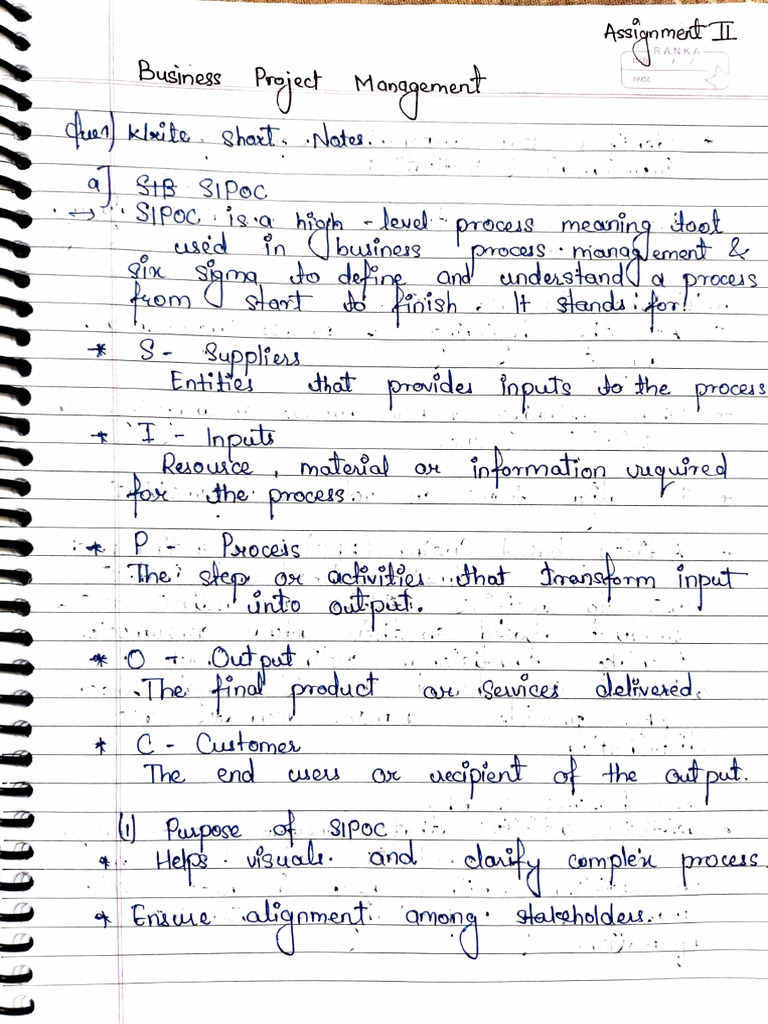 Assignment II
RANKA
PAGE
Business Project Management
Que1) Write short Notes.
a] SIPOC
→ SIPOC is a high-level process meaning tool
used in business process management &
six sigma to define and understand a process
from start to finish. It stands for:
* S - Suppliers
Entities that provides inputs to the process
* I - Inputs
Resource, material or information required
for the process.
* P - Process
The step or activities that transform input
into output.
* O - Output
The final product or services delivered.
* C - Customer
The end users or recipient of the output.
(1) Purpose of SIPOC
* Helps visuals and clarify complex process
* Ensure alignment among stakeholders.